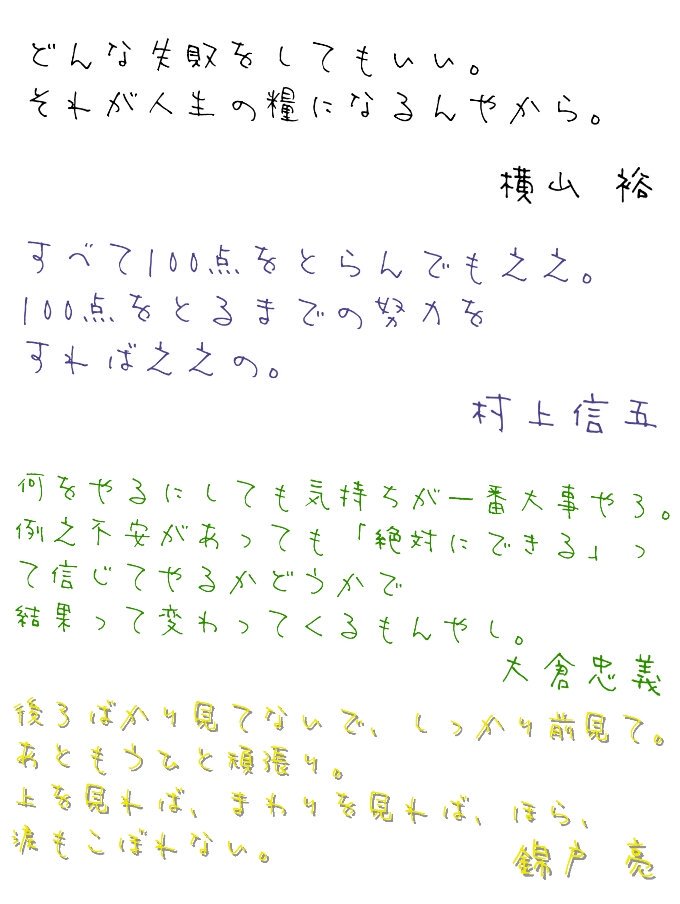 どんな失敗をしてもいい。
それが人生の糧になるんやから。
横山 裕
すべて100点をとらんでもええ。
100点をとるまでの努力を
すればええの。
村上信五
何をやるにしても気持ちが一番大事やろ。
例え不安があっても「絶対にできる」っ
て信じてやるかどうかで
結果って変わってくるもんやし。
大倉忠義
後ろばかり見てないで、しっかり前見て。
あともうひと頑張り。
上を見れば、まわりを見れば、ほら、
涙もこぼれない。
錦戸 亮